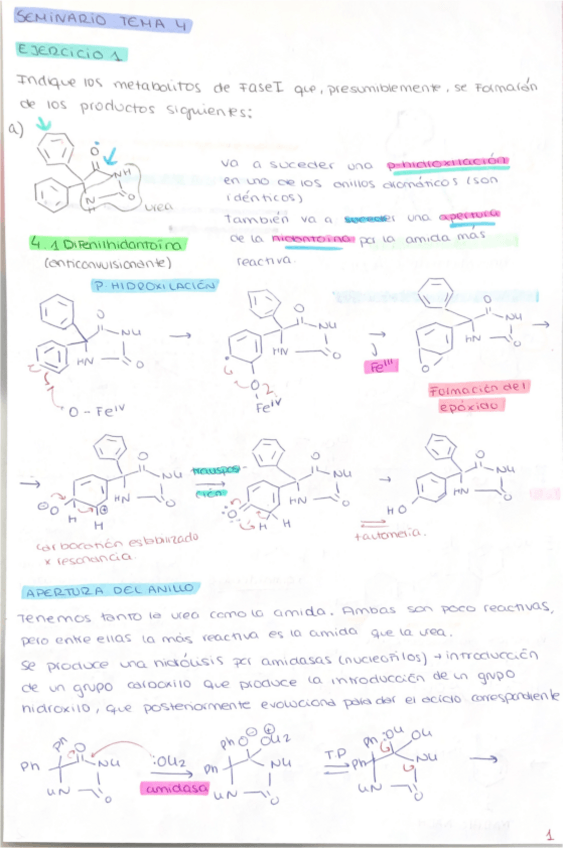 SEMINARIO TEMA 4
EJERCICIO 1
Indique los metabolitos de Fase I que, presumiblemente, se Formarán
de los productos siguientes:
a)
O
NH
N
H
O
urea
va a suceder una p-hidroxilación
en uno de los anillos aromáticos (son
idénticos)
También va a suceder una apertura
de la hidantoína por la amida más
reactiva.
4.1 Difenilhidantoína
(anticonvulsionante)
P-HIDROXILACIÓN
O
NH
HN
O
O - Fe IV
O
NH
HN
O
O
Fe IV
Fe III
O
NH
HN
O
O
Formación del
epóxido
O
NH
HN
O
O
H
H
carbocatión estabilizado
x resonancia.
transposi-
ción
O
NH
HN
O
O
H
H
tautomería.
O
NH
HN
O
HO
APERTURA DEL ANILLO
Tenemos tanto la urea como la amida. Ambas son poco reactivas,
pero entre ellas la más reactiva es la amida que la urea.
Se produce una hidrólisis por amidasas (nucleófilos) → introducción
de un grupo carboxilo que produce la introducción de un grupo
hidroxilo, que posteriormente evoluciona para dar el ácido correspondiente
Ph
Ph
O
NH
HN
O
:OH2
amidasa
Ph
O
OH2
Ph
NH
HN
O
T.P
Ph
:OH
OH
Ph
NH
HN
O
1